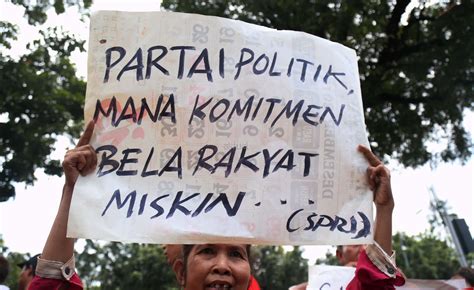 PARTAI POLITIK,
MANA KOMITMEN
BELA RAKYAT
MISKIN... (SPRI)